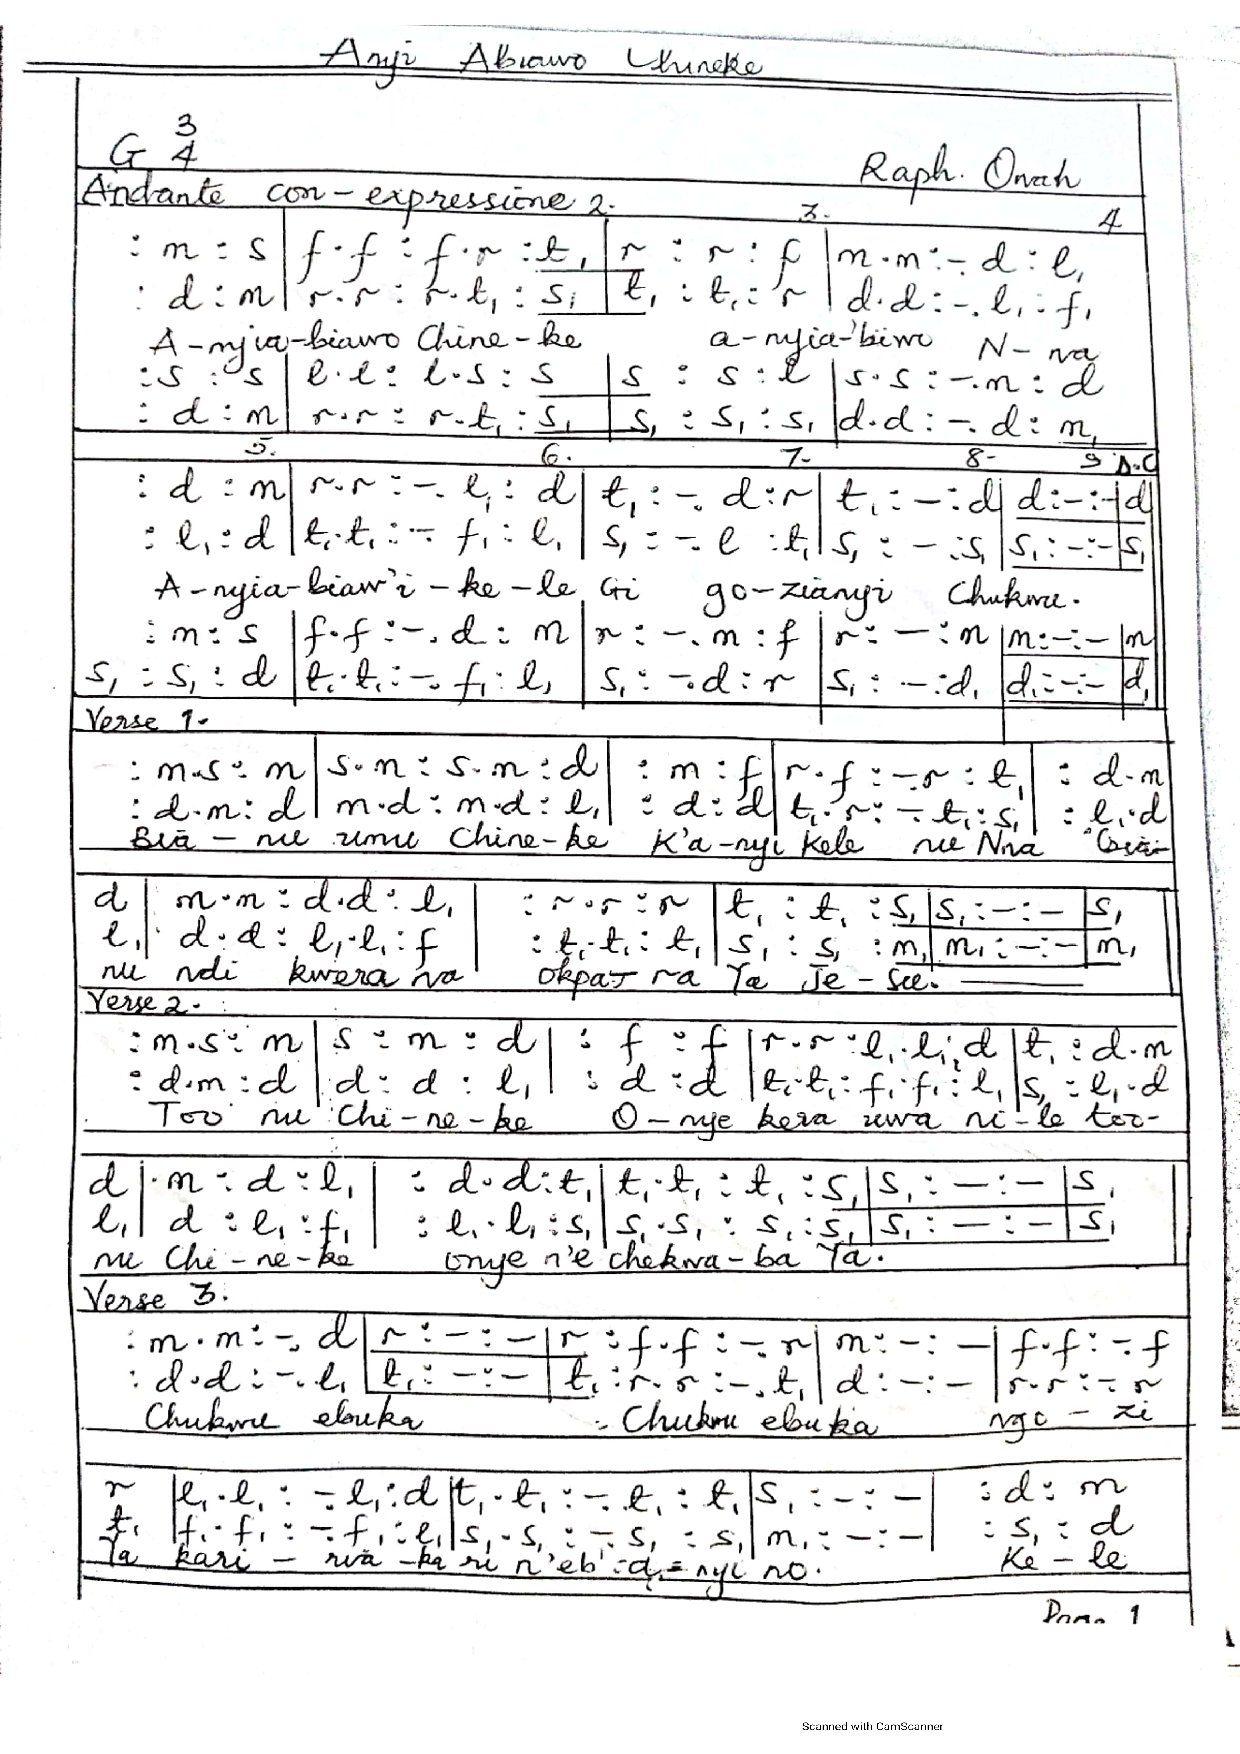 Anyi Abiawo Chineke
G 3/4
Raph. Onah
Andante con-expressione 2. 3. 4
: m : s | f·f : f·r : t₁ | r : r : f | m·m :-. d : l₁
: d : m | r·r : r·t₁ : s₁ | t₁ : t₁ : r | d·d :-. l₁ : f₁
A-nyia-biawo Chine-ke a-nyia'biwo N-na
: s : s | l·l : l·s : s | s : s : l | s·s :-.m : d
: d : m | r·r : r·t₁ : s₁ | s₁ : s₁ : s₁ | d·d :-. d : m₁
5. 6. 7- 8- 9 D.C
: d : m | r·r :-. l₁ : d | t₁ :-. d : r | t₁ : - : d | d : - : - | d
: l₁ : d | t₁·t₁ :- f₁ : l₁ | s₁ :-. l : t₁ | s₁ : - : s₁ | s₁ : - : - | s₁
A-nyia-biaw'i-ke-le Gi go-zianyi Chukwu.
: m : s | f·f :-. d : m | r :-. m : f | r : - : m | m : - : - | m
s₁ : s₁ : d | t₁·t₁ :-. f₁ : l₁ | s₁ :-.d : r | s₁ : - : d₁ | d₁ : - : - | d₁
Verse 1.
: m·s : m | s·m : s·m : d | : m : f | r·f :-r : t₁ | : d·m
: d·m : d | m·d : m·d : l₁ | : d : d | t₁·r :- t₁ : s₁ | : l₁·d
Bia - nu umu Chine-ke K'a-nyi kele nu Nna Bia-
d | m·m : d·d : l₁ | : r·r : r | t₁ : t₁ : s₁ | s₁ : - : - | s₁
l₁ | d·d : l₁·l₁ : f | : t₁·t₁ : t₁ | s₁ : s₁ : m₁ | m₁ : - : - | m₁
nu ndi kwera na okpa ra Ya Je-su.
Verse 2.
: m·s : m | s : m : d | : f : f | r·r : l₁·l₁ : d | t₁ : d·m
: d·m : d | d : d : l₁ | : d : d | t₁·t₁ : f₁·f₁ : l₁ | s₁ : l₁·d
Too nu Chi-ne-ke O-nye kera uwa ni-le too-
d | ·m : d : l₁ | : d·d : t₁ | t₁·t₁ : t₁ : s₁ | s₁ : - : - | s₁
l₁ | d : l₁ : f₁ | : l₁·l₁ : s₁ | s₁·s₁ : s₁ : s₁ | s₁ : - : - | s₁
nu Chi-ne-ke onye n'e chekwa-ba Ya.
Verse 3.
: m·m :-. d | r : - : - | r : f·f :-. r | m : - : - | f·f :-. f
: d·d :-. l₁ | t₁ : - : - | t₁ : r·r :-. t₁ | d : - : - | r·r :- r
Chukwu ebuka - Chukwu ebuka ngo-zi
r | l₁·l₁ : -l₁ : d | t₁·t₁ :-. t₁ : t₁ | s₁ : - : - | : d : m
t₁ | f₁·f₁ :-.f₁ : l₁ | s₁·s₁ :-s₁ : s₁ | m₁ : - : - | : s₁ : d
Ya kari - ka ri n'eb' nyi no. Ke-le
Page 1
Scanned with CamScanner